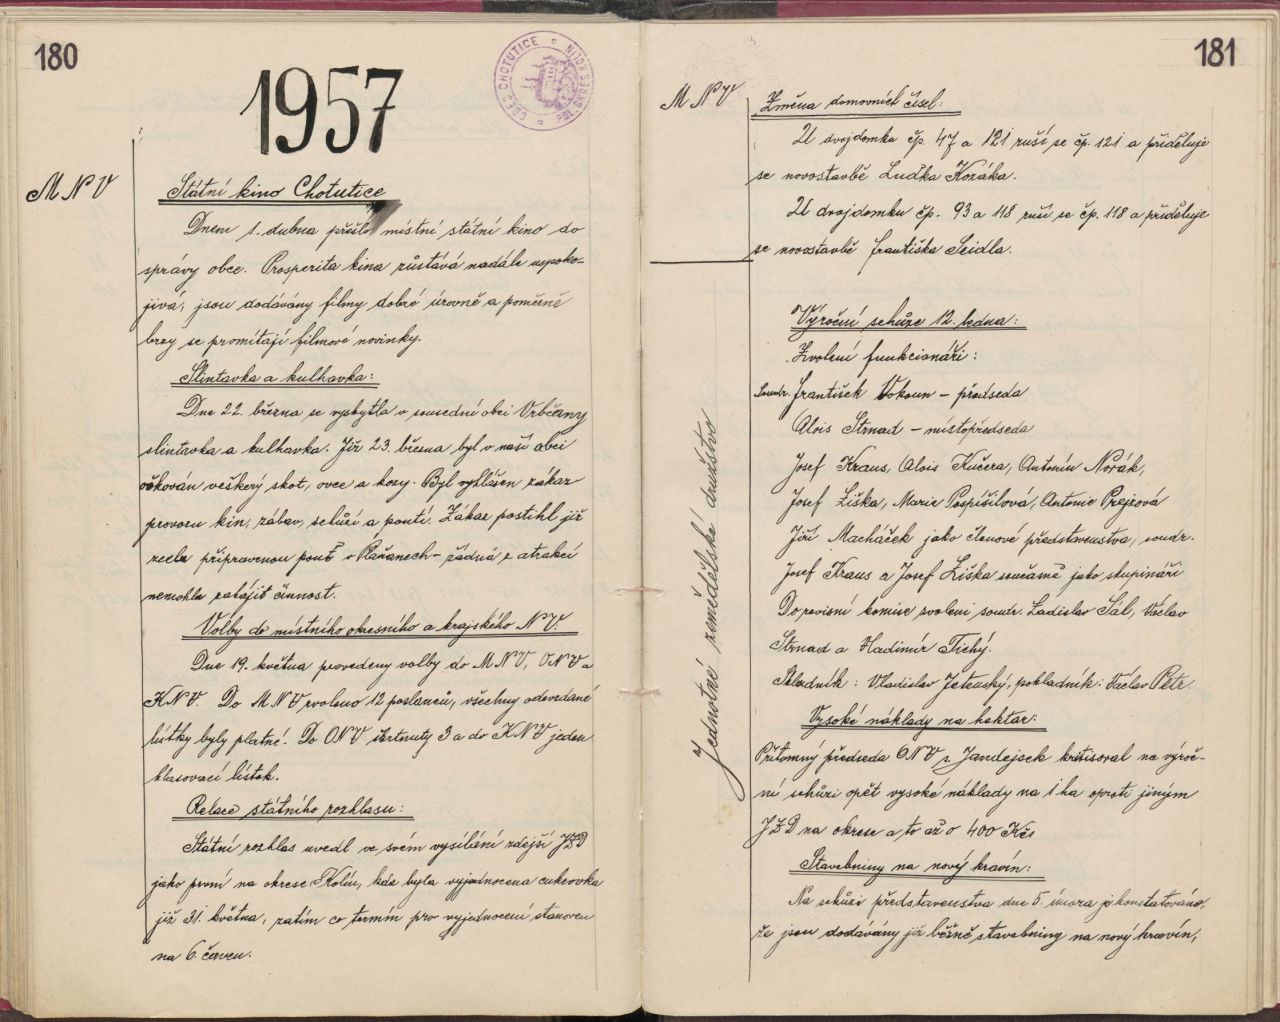 180
1957
OBEC CHOTUTICE = POL. OKRES KOLÍN =
M N V
Státní kino Chotutice
Dnem 1. dubna přešlo místní státní kino do
správy obce. Prosperita kina zůstává nadále uspoko-
jivá, jsou dodávány filmy dobré úrovně a poměrně
brzy se promítají filmové novinky.
Slintavka a kulhavka:
Dne 22. března se vyskytla v sousední obci Vrbčany
slintavka a kulhavka. Již 23. března byl v naší obci
očkován veškerý skot, ovce a kozy. Byl vyhlášen zákaz
provozu kin, zábav, schůzí a poutí. Zákaz postihl již
zcela připravenou pouť v Plaňanech – žádná z atrakcí
nemohla zahájit činnost.
Volby do místního okresního a krajského N V.
Dne 19. května provedeny volby do M N V, O N V a
K N V. Do M N V zvoleno 12 poslanců, všechny odevzdané
lístky byly platné. Do O N V škrtnuty 3 a do K N V jeden
hlasovací lístek.
Relace státního rozhlasu:
Státní rozhlas uvedl ve svém vysílání zdejší JZD
jako první na okrese Kolín, kde byla vyjednocena cukrovka
již 31. května, zatím co termín pro vyjednocení stanoven
na 6. červen.
181
M N V
Změna domovních čísel:
U dvojdomku čp. 47 a 121 ruší se čp. 121 a přiděluje
se novostavbě Luďka Kozáka.
U dvojdomku čp. 93 a 118 ruší se čp. 118 a přiděluje
se novostavbě františka Seidla.
Jednotné zemědělské družstvo
Výroční schůze 12. ledna:
Zvolení funkcionáři:
Soudr. františek Vokoun – předseda
Alois Strnad – místopředseda
Josef Kraus, Alois Kučera, Antonín Novák,
Josef Liška, Marie Pospíšilová, Antonie Prejzová
Jiří Macháček jako členové představenstva, soudr.
Josef Kraus a Josef Liška současně jako skupináři
Do revisní komise zvoleni soudr. Ladislav Sál, Václav
Strnad a Vladimír Tichý.
Skladník: Vladislav Jetenský, pokladník: Václav Petr.
Vysoké náklady na hektar:
Přítomný předseda ONV s. Jandejsek kritisoval na výroč-
ní schůzi opět vysoké náklady na 1 ha oproti jiným
JZD na okrese a to až o 400 Kčs
Stavebniny na nový kravín:
Na schůzi představenstva dne 5. února je konstatováno,
že jsou dodávány již běžně stavebniny na nový kravín,